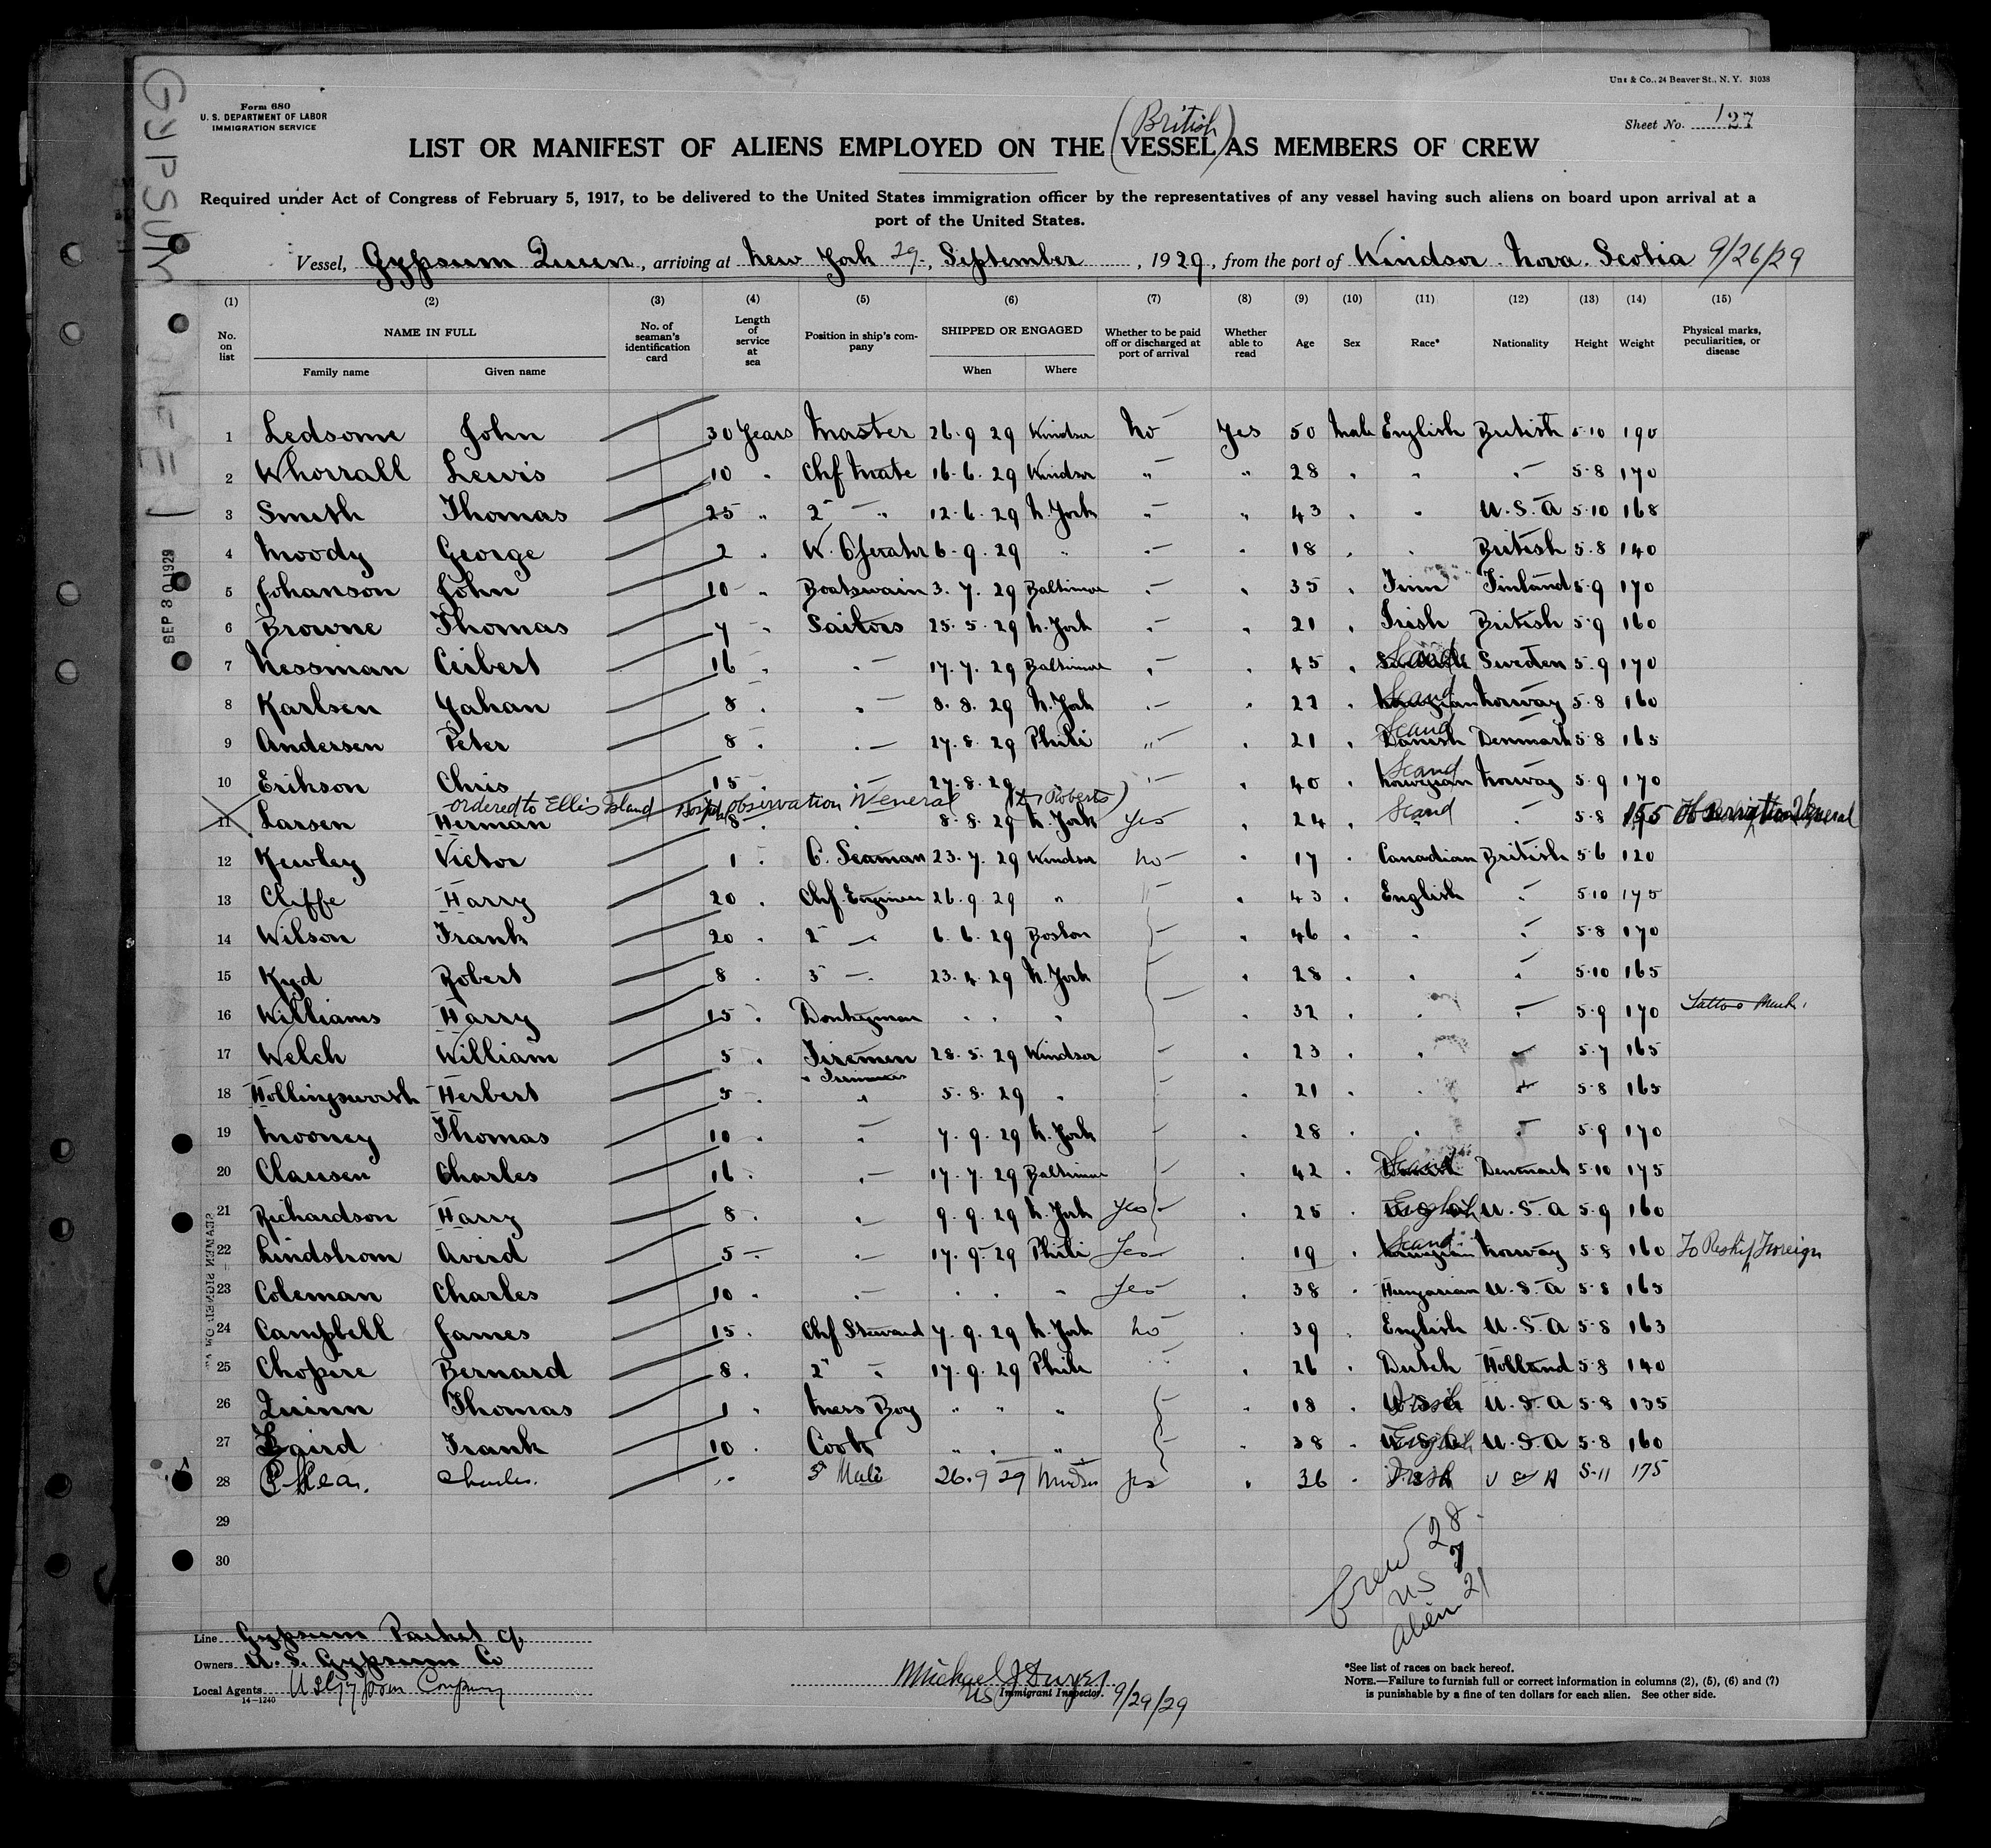 Unz & Co., 24 Beaver St., N. Y. 31038
Form 680
U. S. DEPARTMENT OF LABOR
IMMIGRATION SERVICE
Sheet No. 1 27
(British)
LIST OR MANIFEST OF ALIENS EMPLOYED ON THE VESSEL AS MEMBERS OF CREW
Required under Act of Congress of February 5, 1917, to be delivered to the United States immigration officer by the representatives of any vessel having such aliens on board upon arrival at a
port of the United States.
Vessel, Gypsum Queen, arriving at New York 29, September, 1929, from the port of Windsor. Nova. Scotia 9/26/29
GYPSUM QUEEN
SEP 30 1929
(1) (2) (3) (4) (5) (6) (7) (8) (9) (10) (11) (12) (13) (14) (15)
No. on list
NAME IN FULL
Family name
Given name
No. of seaman's identification card
Length of service at sea
Position in ship's company
SHIPPED OR ENGAGED
When
Where
Whether to be paid off or discharged at port of arrival
Whether able to read
Age
Sex
Race*
Nationality
Height
Weight
Physical marks, peculiarities, or disease
1 Ledsome John 30 Years Master 26.9 29 Windsor No Yes 50 Male English British 5.10 190
2 Whorrall Lewis 10 " Chf Mate 16.6.29 Windsor " " 28 " " " 5.8 170
3 Smith Thomas 25 " 2 " 12.6.29 N. York " " 43 " " U.S.A 5.10 168
4 Moody George 2 " W. Operator 6.9.29 " " " 18 " " British 5.8 140
5 Johanson John 10 " Boatswain 3.7.29 Baltimore " " 35 " Finn Finland 5.9 170
6 Browne Thomas 7 " Sailors 25.5.29 N. York " " 21 " Irish British 5.9 160
7 Nessman Ceibert 16 " " 17.7.29 Baltimore " " 45 " Scand Sweden 5.9 170
8 Karlsen Yahan 8 " " 8.8.29 N. York " " 22 " Scand Norway 5.8 160
9 Andersen Peter 8 " " 27.8.29 Phili " " 21 " Danish Scand Denmark 5.8 165
10 Erikson Chris 15 " " 27.8.29 " " " 40 " Norwegian Scand Norway 5.9 170
ordered to Ellis Island Hospital observation Veneral (Dr Roberts)
11 Larsen Herman 8 " " 8.8.29 N. York Yes " 24 " Scand " 5.8 155
12 Kewley Victor 1 " O. Seaman 23.7.29 Windsor No " 17 " Canadian British 5.6 120
13 Cliffe Harry 20 " Chf. Engineer 26.9.29 " " " 43 " English " 5.10 175
14 Wilson Frank 20 " 2 " 6.6.29 Boston " " 46 " " " 5.8 170
15 Kyd Robert 8 " 3 " 23.4.29 N. York " " 28 " " " 5.10 165
16 Williams Harry 15 " Donkeyman " " " " 32 " " " 5.9 170 Tattoo Mark.
17 Welch William 5 " Firemen 28.5.29 Windsor " " 23 " " " 5.7 165
" Trimmers
18 Hollingsworth Herbert 5 " " 5.8.29 " " " 21 " " " 5.8 165
19 Mooney Thomas 10 " " 7.9.29 N. York " " 28 " " " 5.9 170
20 Clausen Charles 16 " " 17.7.29 Baltimore " " 42 " Scand Denmark 5.10 175
21 Richardson Harry 8 " " 9.9.29 N. York Yes " 25 " English U.S.A 5.9 160
22 Lindstrom Avird 5 " " 17.9.29 Phili Yes " 19 " Norwegian Scand Norway 5.8 160 To Reship Foreign
23 Coleman Charles 10 " " " " Yes " 38 " Hungarian U.S.A 5.8 165
24 Campbell James 15 " Chf Steward 7.9.29 N. York No " 39 " English U.S.A 5.8 163
25 Chopire Bernard 8 " 2" " 17.9.29 Phili " " 26 " Dutch Holland 5.8 140
26 Quinn Thomas 1 " Mess Boy " " " " 18 " Irish U.S.A 5.8 135
27 Baird Frank 10 " Cook " " " " 38 " English U.S.A 5.8 160
28 O'Hea. Charles. " 3rd Mate 26.9 29 Windsor Yes " 36 " Irish U S A 5.11 175
29
30
Crew 28
US 7
Alien 21
Line Gypsum Packet Co.
Owners U.S. Gypsum Co
Local Agents U S Gypsum Company
14—1240
Michael J Dwyer
US Immigrant Inspector. 9/29/29
*See list of races on back hereof.
NOTE.—Failure to furnish full or correct information in columns (2), (5), (6) and (7)
is punishable by a fine of ten dollars for each alien. See other side.